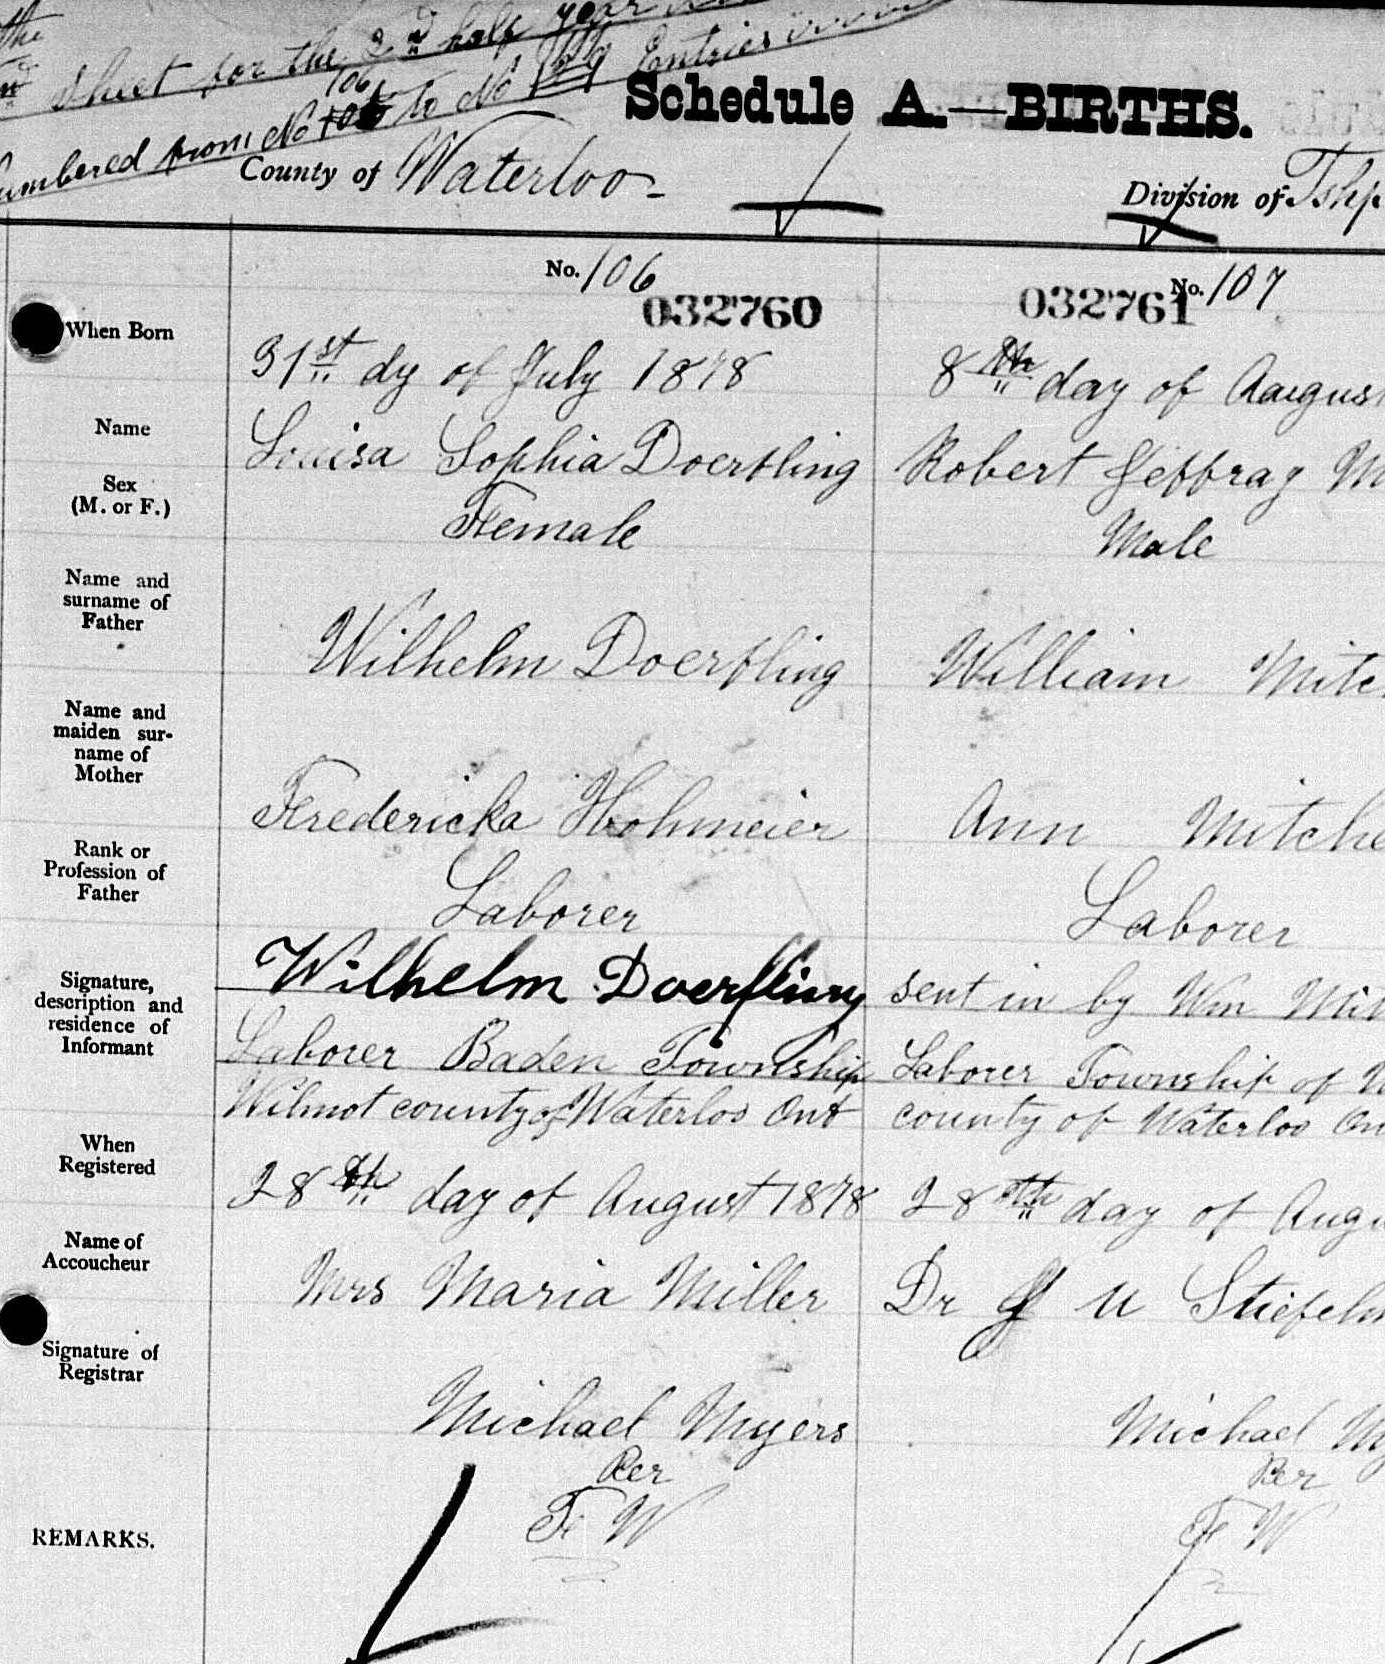 the
nd sheet for the 2nd half year
106
numbered from No 105 to No Entries
Schedule A.—BIRTHS.
County of Waterloo
Division of Tshp
No. 106
No. 107
032760
032761
When Born
31st dy of July 1878
8th day of August
Name
Louisa Sophia Doerfling
Robert Jeffray M
Sex
(M. or F.)
Female
Male
Name and
surname of
Father
Wilhelm Doerfling
William Mitc
Name and
maiden sur-
name of
Mother
Fredericka Hohmeier
Ann Mitche
Rank or
Profession of
Father
Laborer
Laborer
Signature,
description and
residence of
Informant
Wilhelm Doerfling
Laborer Baden Township
Wilmot county of Waterloo Ont
sent in by Wm Mit
Laborer Township of W
county of Waterloo On
When
Registered
28th day of August 1878
28th day of Augu
Name of
Accoucheur
Mrs Maria Miller
Dr J U Stiefelm
Signature of
Registrar
Michael Myers
Per
F W
Michael My
Per
F W
REMARKS.